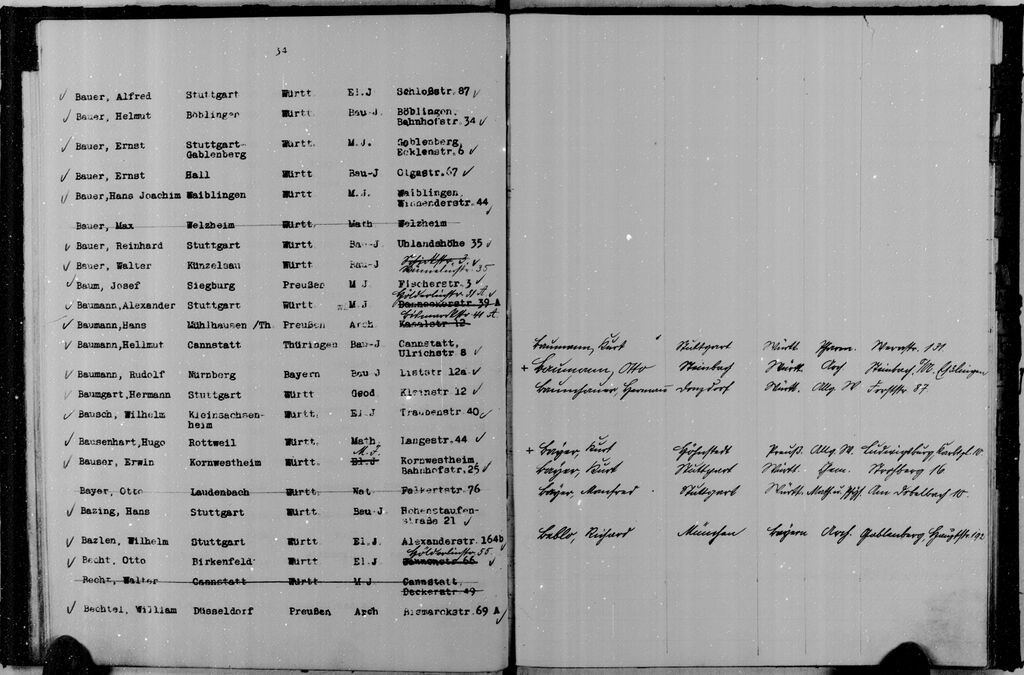 34
✓ Bauer, Alfred Stuttgart Württ. El.J Schloßstr.87 ✓
✓ Bauer, Helmut Böblingen Württ. Bau-J. Böblingen,
Bahnhofstr.34 ✓
✓ Bauer, Ernst Stuttgart- Württ. M.J. Gablenberg,
Gablenberg Ecklenstr.6 ✓
✓ Bauer, Ernst Hall Württ Bau-J Olgastr.67 ✓
✓ Bauer,Hans Joachim Waiblingen Württ M.J. Waiblingen,
Winnenderstr.44
Bauer, Max Welzheim Württ. Math Welzheim
✓ Bauer, Reinhard Stuttgart Württ Bau-J. Uhlandshöhe 35 ✓
✓ Bauer, Walter Künzelsau Württ Bau-J
✓ Baum, Josef Siegburg Preußen M J. Fischerstr.3 ✓
Hölderlinstr. 31 A. ✓
✓ Baumann,Alexander Stuttgart Württ M.J. Danneckerstr 39 A
Bismarckstr 41 A.
✓ Baumann,Hans Mühlhausen /Th. Preußen Arch Kanalstr 12
✓ Baumann,Hellmut Cannstatt Thüringen Bau-J Cannstatt,
Ulrichstr 8 ✓
✓ Baumann, Rudolf Nürnberg Bayern Bau J Liststr 12a ✓
✓ Baumgart,Hermann Stuttgart Württ Geod Kleinstr 12 ✓
✓ Bausch, Wilhelm Kleinsachsen- Württ. El.J Traubenstr 40 ✓
heim
✓ Bausenhart,Hugo Rottweil Württ. Math. Langestr.44 ✓
M.J.
✓ Bauser, Erwin Kornwestheim Württ. El.J Kornwestheim,
Bahnhofstr.25 ✓
Bayer, Otto Laudenbach Württ. Nat Falkertstr.76
✓ Bazing, Hans Stuttgart Württ Bau-J Hohenstaufen-
straße 21 ✓
✓ Bazlen, Wilhelm Stuttgart Württ. El.J. Alexanderstr.164b
Hölderlinstr. 55.
✓ Becht, Otto Birkenfeld Württ. El.J 66 ✓
Becht, Walter Cannstatt Württ M.J Cannstatt,
Deckerstr 49
✓ Bechtel, William Düsseldorf Preußen Arch Bismarckstr.69 A
Baumann, Kurt Stuttgart Württ Pharm. 131
+ Baumann, Otto Steinbach Württ. Arch Steinbach, Esslingen
Baumhauer, Hermann Donzdorf Württ. Allg W Forststr 87
+ Bayer, Kurt Preuß. Allg. W. Ludwigsburg, 10
Bayer, Kurt Stuttgart Württ. Chem. 16
Bayer, Manfred Stuttgart Württ. Math u. Phys. Am Dobelbach 10.
Beblo, Richard München Bayern Arch. Gablenberg, Hauptstr 192